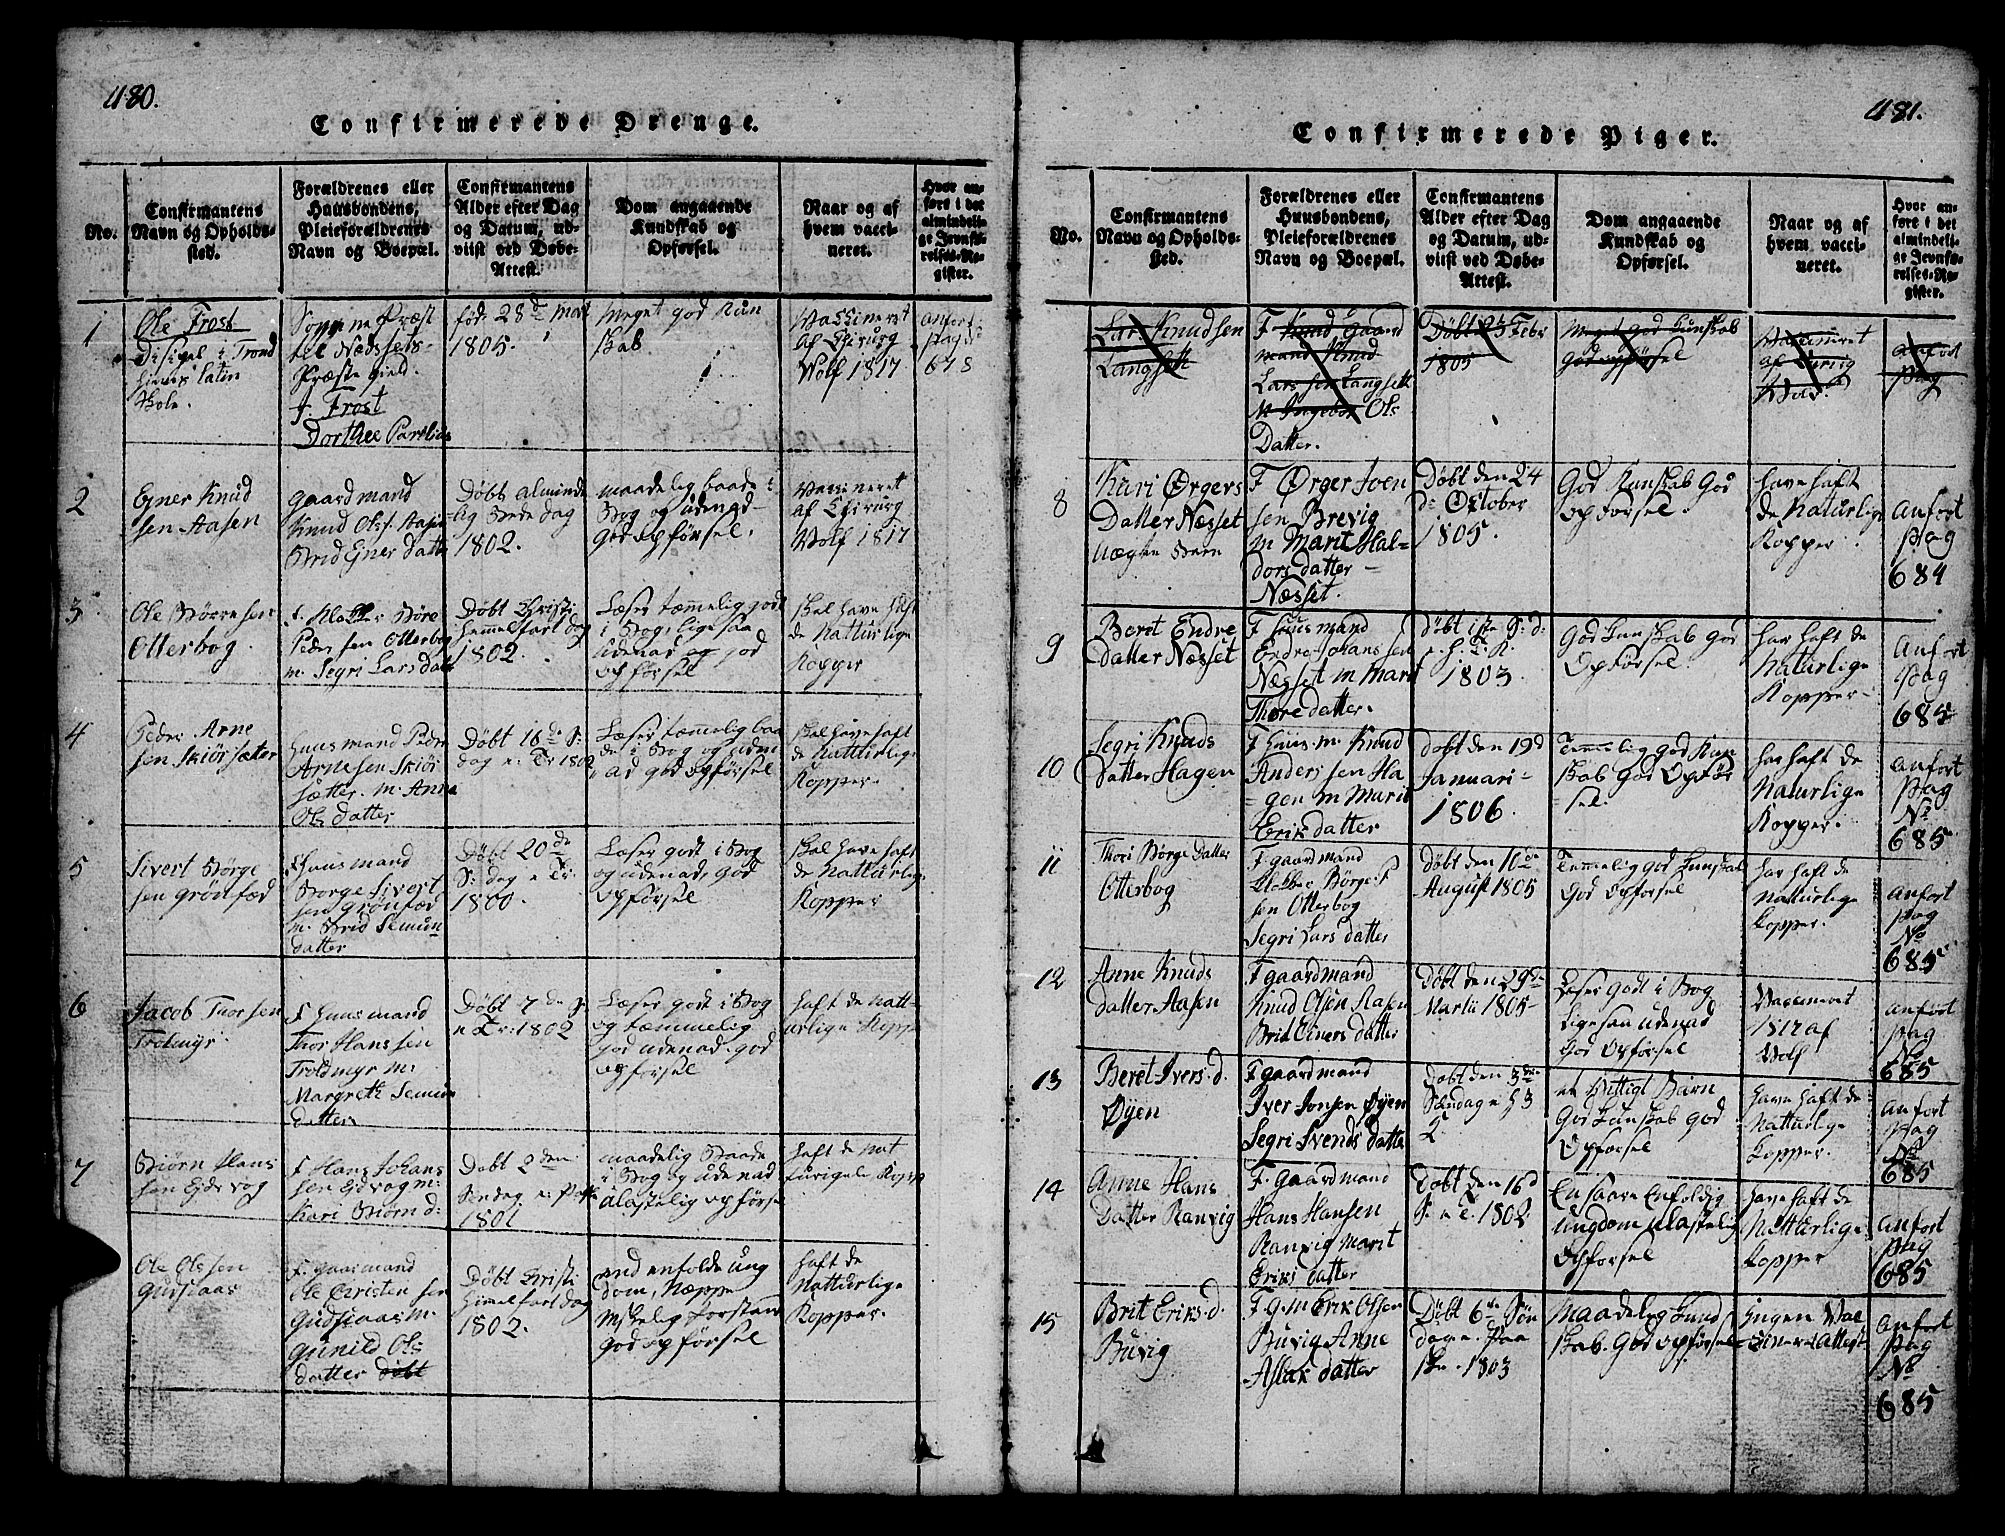 480.
Confirmerede Drenge.
No.
Confirmantens
Navn og Opholds-
sted.
Forældrenes eller
Huusbondens,
Pleieforældrenes
Navn og Boepæl.
Confirmantens
Alder efter Dag
og Datum, ud-
viist ved Døbe-
Attest.
Dom angaaende
Kundskab og
Opførsel.
Naar og af
hvem vacci-
neret.
Hvor an-
føre i det
almindeli-
ge Jevnfø-
relses-Re-
gister.
1
Ole Frost
Disipel i Trond
hiems latin
Skole.
Sogne Præst
til Nessets
Præste gield
f. Frost
Dorthee Parelius
fød: 28de Mart
1805.
Meget god Kun
skab
Vaccineret
af Chirurg
Wolf 1817
anfort
pag
678
2
Egner Knud
sen Aasen
gaardmand
Knud Olss. Aasen
Brid Ejner datter
Døbt Alminde
lig Bede dag
1802.
maadelig baade i
Bog og udenad
god opførsel.
Vaccineret
af Chirurg
Wolf 1817
3
Ole Børre sen
Otterbog.
f. Klokker Børe
Peder sen Otterbog
m. Segri Lars datter
Døbt Christi
Hemmelfart dag
1802.
Læser tæmmelig godt
i Bog, lige saa
udenad og god
opførsel
skal have haft
de Natturlige
Kopper
4
Peder Arne
sen Skiørsæter
huusmand Peder
Arnesen Skiør
sætter. m. Anne
Ols datter
Døbt 16de S:
dag e: Tr 1802
Læser temmelig baa
de i Bog og uden
ad god opførsel
skal have haft
de Natturlige
Kopper.
5
Sivert Børge
sen grønfæd
f huusmand
Børge Sivert
sen Grønfæd
m. Brid Semun
datter
Døbt 20de
S: dag e Tr:
1800.
Læser godt i Bog
og udenad, god
opførsel
skal have haft
de Natturlige
Kopper
6
Jacob Thorsen
Trolmyr.
f huusmand
Thor Hanssen
Troldmyr m:
Margrethe Semun
datter
Døbt 7de S
e Tr: 1802
Læser godt i Bog
og tæmmelig
god udenad. god
opførsel
haft de natt-
urlige Kopper
7
Biørn Hans
sen Ejdsvog
f Hans Johans
sen Ejdvog m:
Kari Biørn d:
Døbt 2den
Søndag e: Paaske
1801
maadelig Baade
i Bog og udenad
ulastelig opførsel
haft de nat
turligele Kopper
Ole Olssen
Gudsiaas
f. gaarmand
Ole Christen sen
Gudsiaas m.
gunild Ols
datter døbt
Døbt Christi
Himelfart dag
1802.
end enfolde ung
dom, Næppe
Maadelig Forstand
god opførsel
haft de
natturlige
Kopper.
481.
Confirmerede Piger.
No.
Confirmantens
Navn og Opholds-
sted.
Forældrenes eller
Huusbondens,
Pleieforældrenes
Navn og Boepæl.
Confirmantens
Alder efter Dag
og Datum, ud-
viist ved Døbe-
Attest.
Dom angaaende
Kundskab og
Opførsel.
Naar og af
hvem vacci-
neret.
Hvor an-
føre i det
almindeli-
ge Jevnfø-
relses-Re-
gister.
Lars Knudsen
Langsett
F. Knud Gaard
mand Knud
Lars sen Langsett
M Ingebor Ols
Datter.
Døbt 25 Febr
1805
Meget god kunskab
god opførsel
Vaccineret
af Chirurg
Wolf.
anfort
pag
8
Kari Ørgers
Datter Næsset
Uægte Barn
F Ørger Joen
sen Brevig
m Marit Hal-
dors datter
Næsset.
Døbt den 24
de October
1805.
God Kunskab God
Opførsel.
have haft
de Naturlige
Kopper
anfort
pag
684
9
Berit Endre
datter Næsset
F Huusmand
Endre Johans sen
Næsset m Marit
Thore datter.
Døbt 1ste S: d:
e. h. T. K.
1803
God kunskab God
Opførsel.
har haft de
Naturlige
Kopper
anfort
pag
685
10
Segri Knuds
datter Hagen
F huus m. Knud
Anders sen Ha
gen m Marit
Eriks datter
Døbt den 19d
Januari
1806.
Temmelig god Kun
skab God Opfør
sel.
har haft de
Naturlige
Kopper.
anfort
pag
No
685
11
Thori Børge datter
Otterbog
F. gaardmand
Klokker Børge P
sen Otterbog
Segri Lars datter
Døbt den 10de
August 1805
Temmelig god kunskab
God Opførsel
har haft de
Naturlige
kopper.
anfort
pag
No
685
12
Anne Knuds
datter Aasen
F gaardmand
Knud Olsen Aasen
Brid Einers datter
Døbt den 29de
Martii 1805
Læser Godt i Bog
Ligesaa udenad
God Opførsel
Vaccineret
1817 af
Wolf
anfort
pag
No
685
13
Beret Ivers. d.
Øyen
F gaardmand
Iver Jonsen Øyen
Segri Svends datter
Døbt den 3de
Søndag e H 3
2
et Hittigt Barn
God kunskab God
Opførsel
have haft de
Natturlige
kopper.
anfort
pag
No
685
14
Anne Hans
Datter Ranvig
F. gaardmand
Hans Hansen
Ranvig Marit
Eriks datter
Døbt den 16d
S. e T. 1802
En saare Enfoldig
Ungdom ulastelig
Opførsel
have haft de
Natturlige
Kopper
anfort
pag
685
15
Brit Eriks. d.
Buvig
F. g. m Erik Olsen
Buvig Anne
Aslak datter
Døbt 6te Søn
dag e. Paa
ske. 1803
Maadelig kund
skab. God opførsel
Ingen Vac
cineret Attest
anfort
pag
No
685